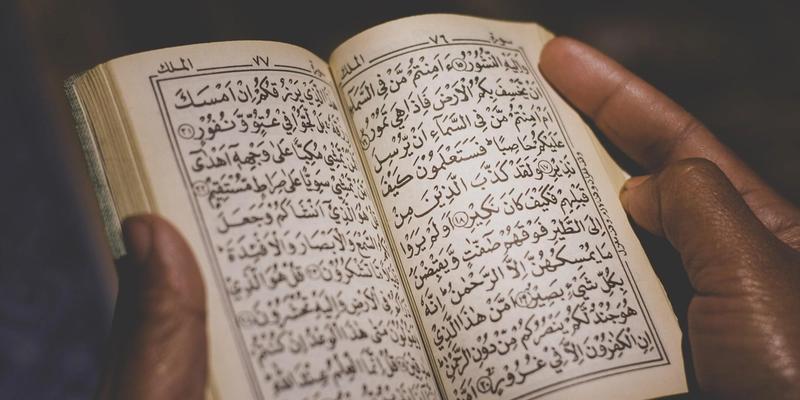 سورة ٧٦ الملك
وَإِلَيْهِ النُّشُورُ ١٥ ءَأَمِنْتُمْ مَّنْ فِي السَّمَاءِ
أَنْ يَّخْسِفَ بِكُمُ الْأَرْضَ فَإِذَا هِيَ تَمُورُ ١٦
أَمْ أَمِنْتُمْ مَّنْ فِي السَّمَاءِ أَنْ يُّرْسِلَ
عَلَيْكُمْ حَاصِبًا فَسَتَعْلَمُونَ كَيْفَ
نَذِيرِ ١٧ وَلَقَدْ كَذَّبَ الَّذِينَ مِنْ
قَبْلِهِمْ فَكَيْفَ كَانَ نَكِيرِ ١٨ أَوَلَمْ يَرَوْا
إِلَى الطَّيْرِ فَوْقَهُمْ صٰفّٰتٍ وَّيَقْبِضْنَ
مَا يُمْسِكُهُنَّ إِلَّا الرَّحْمٰنُ إِنَّهُ
بِكُلِّ شَيْءٍ بَصِيرٌ ١٩ أَمَّنْ هٰذَا الَّذِي
هُوَ جُنْدٌ لَّكُمْ يَنْصُرُكُمْ مِّنْ دُونِ الرَّحْمٰنِ
إِنِ الْكٰفِرُونَ إِلَّا فِي غُرُورٍ ٢٠
سورة ٧٧ الملك
الَّذِي يَرْزُقُكُمْ إِنْ أَمْسَكَ
بَلْ لَّجُّوا فِي عُتُوٍّ وَّنُفُورٍ ٢١
يَّمْشِي مُكِبًّا عَلٰى وَجْهِهِ أَهْدٰى
يَّمْشِي سَوِيًّا عَلٰى صِرَاطٍ مُّسْتَقِيمٍ ٢٢
هُوَ الَّذِي أَنْشَأَكُمْ وَجَعَلَ
السَّمْعَ وَالْأَبْصَارَ وَالْأَفْئِدَةَ
تَشْكُرُونَ ٢٣ قُلْ هُوَ الَّذِي
فِي الْأَرْضِ وَإِلَيْهِ تُحْشَرُونَ ٢٤
مَتٰى هٰذَا الْوَعْدُ إِنْ كُنْتُمْ
قُلْ إِنَّمَا الْعِلْمُ عِنْدَ اللّٰهِ